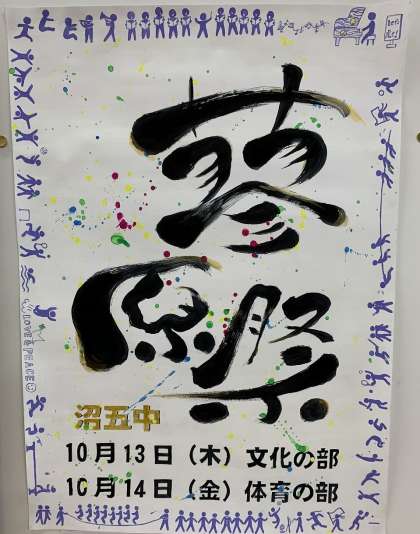 蓼
原祭
沼五中
10月13日（木）文化の部
10月14日（金）体育の部
LOVE&PEACE